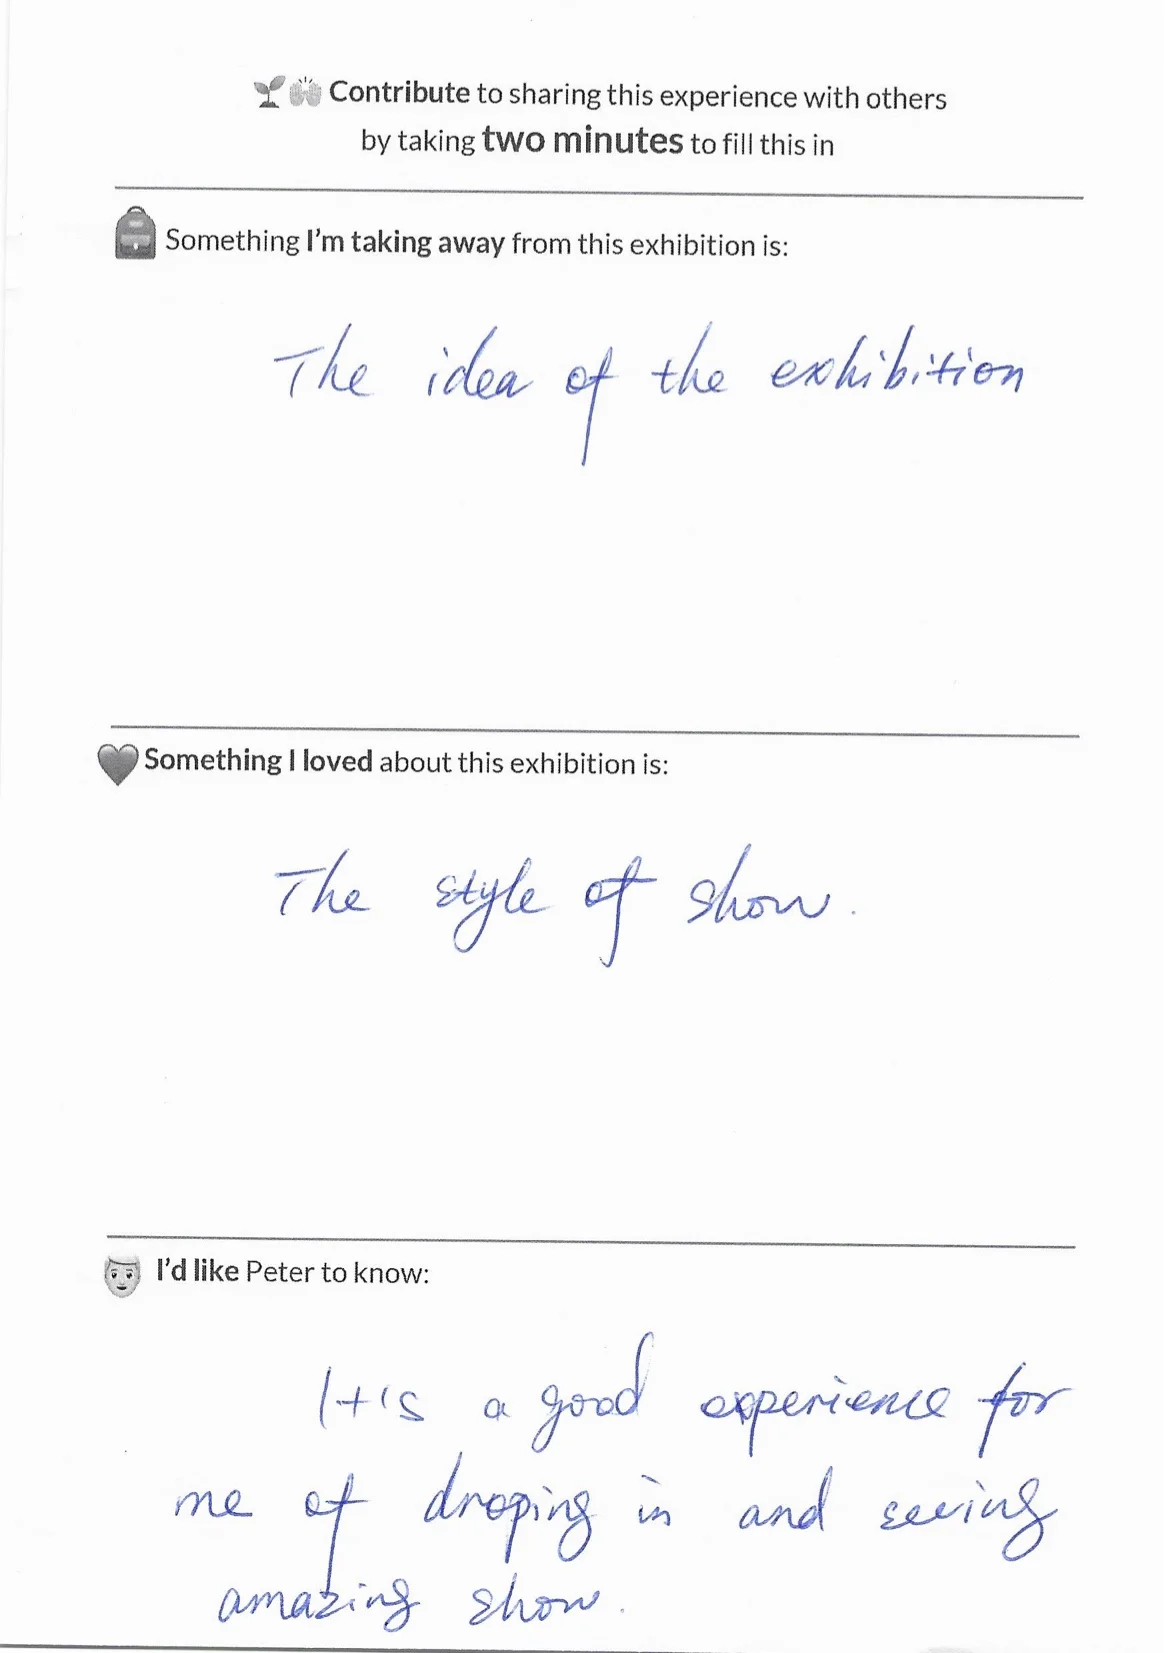 Contribute to sharing this experience with others
by taking two minutes to fill this in
Something I'm taking away from this exhibition is:
The idea of the exhibition
Something I loved about this exhibition is:
The style of show.
I'd like Peter to know:
It's a good experience for
me of droping in and seeing
amazing show.